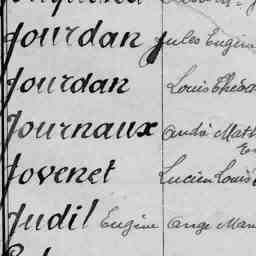 Jourdan Jules Eugène
Jourdan Louis Théod
Journaux André Math
Jovenet Lucien Louis
Judil Eugène Ange Mar